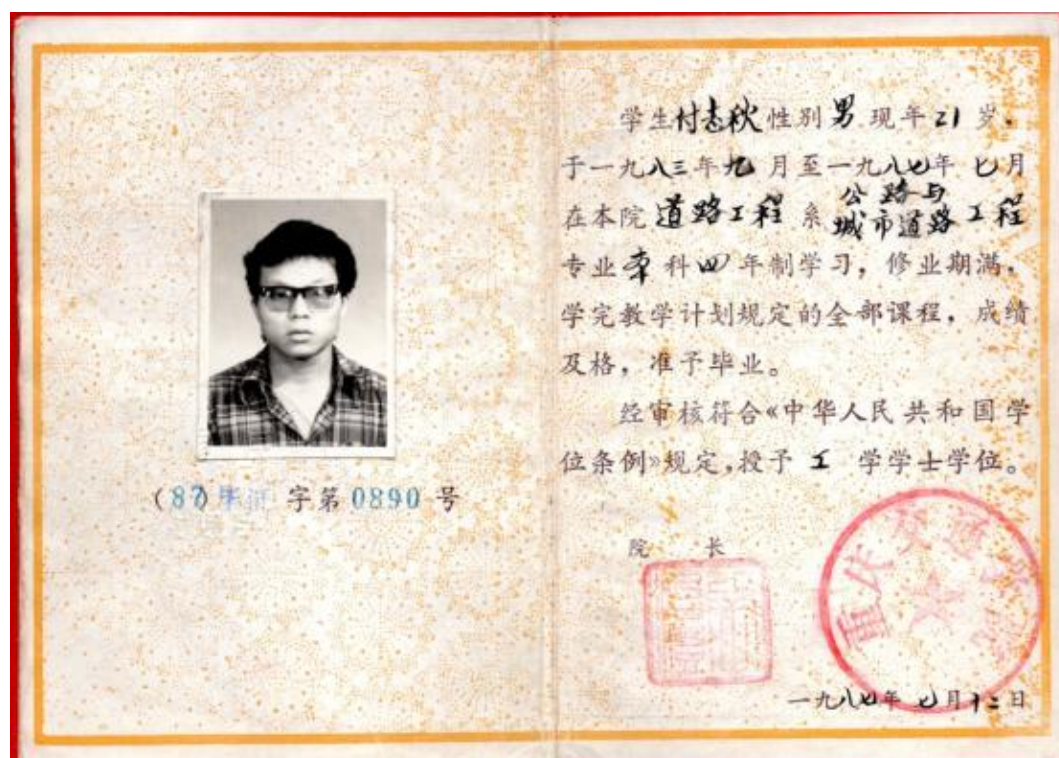 (87) 毕证 字第 0890 号
学生付志秋性别男现年21岁，
于一九八三年九月至一九八七年七月
在本院道路工程系公路与城市道路工程
专业本科四年制学习，修业期满，
学完教学计划规定的全部课程，成绩
及格，准予毕业。
经审核符合《中华人民共和国学
位条例》规定，授予工学学士学位。
院 长
重庆交通学院
一九八七年七月十二日